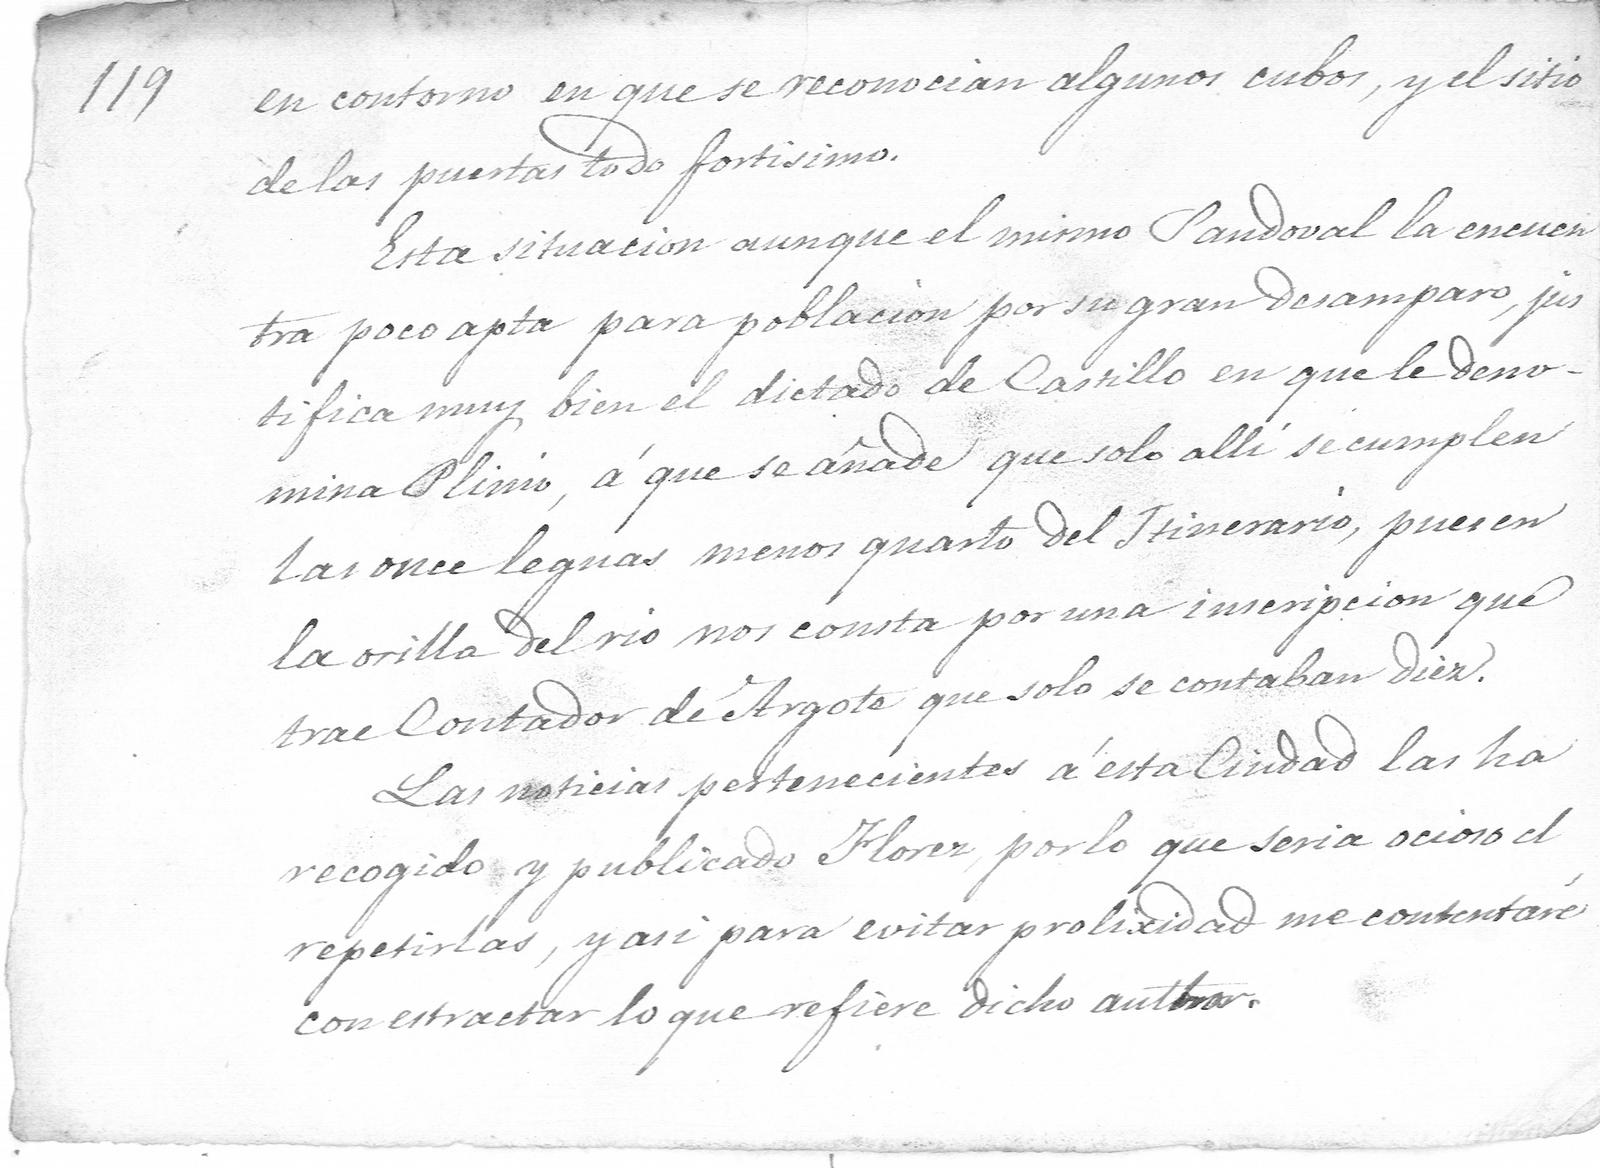 119
en contorno en que se reconocian algunos cubos, y el sitio
de las puertas todo fortisimo.
Esta situacion aunque el mismo Sandoval la encuen
tra poco apta para poblacion por su gran desamparo, jus
tifica muy bien el dictado de Castillo en que le deno-
mina Plinio, á que se añade que solo allí se cumplen
las once leguas menos quarto del Itinerario, pues en
la orilla del rio nos consta por una inscripcion que
trae Contador de Argote que solo se contaban diez.
Las noticias pertenecientes á esta Ciudad las ha
recogido y publicado Florez, por lo que seria ocioso el
repetirlas, y asi para evitar prolixidad me contentaré
con estractar lo que refiere dicho author.